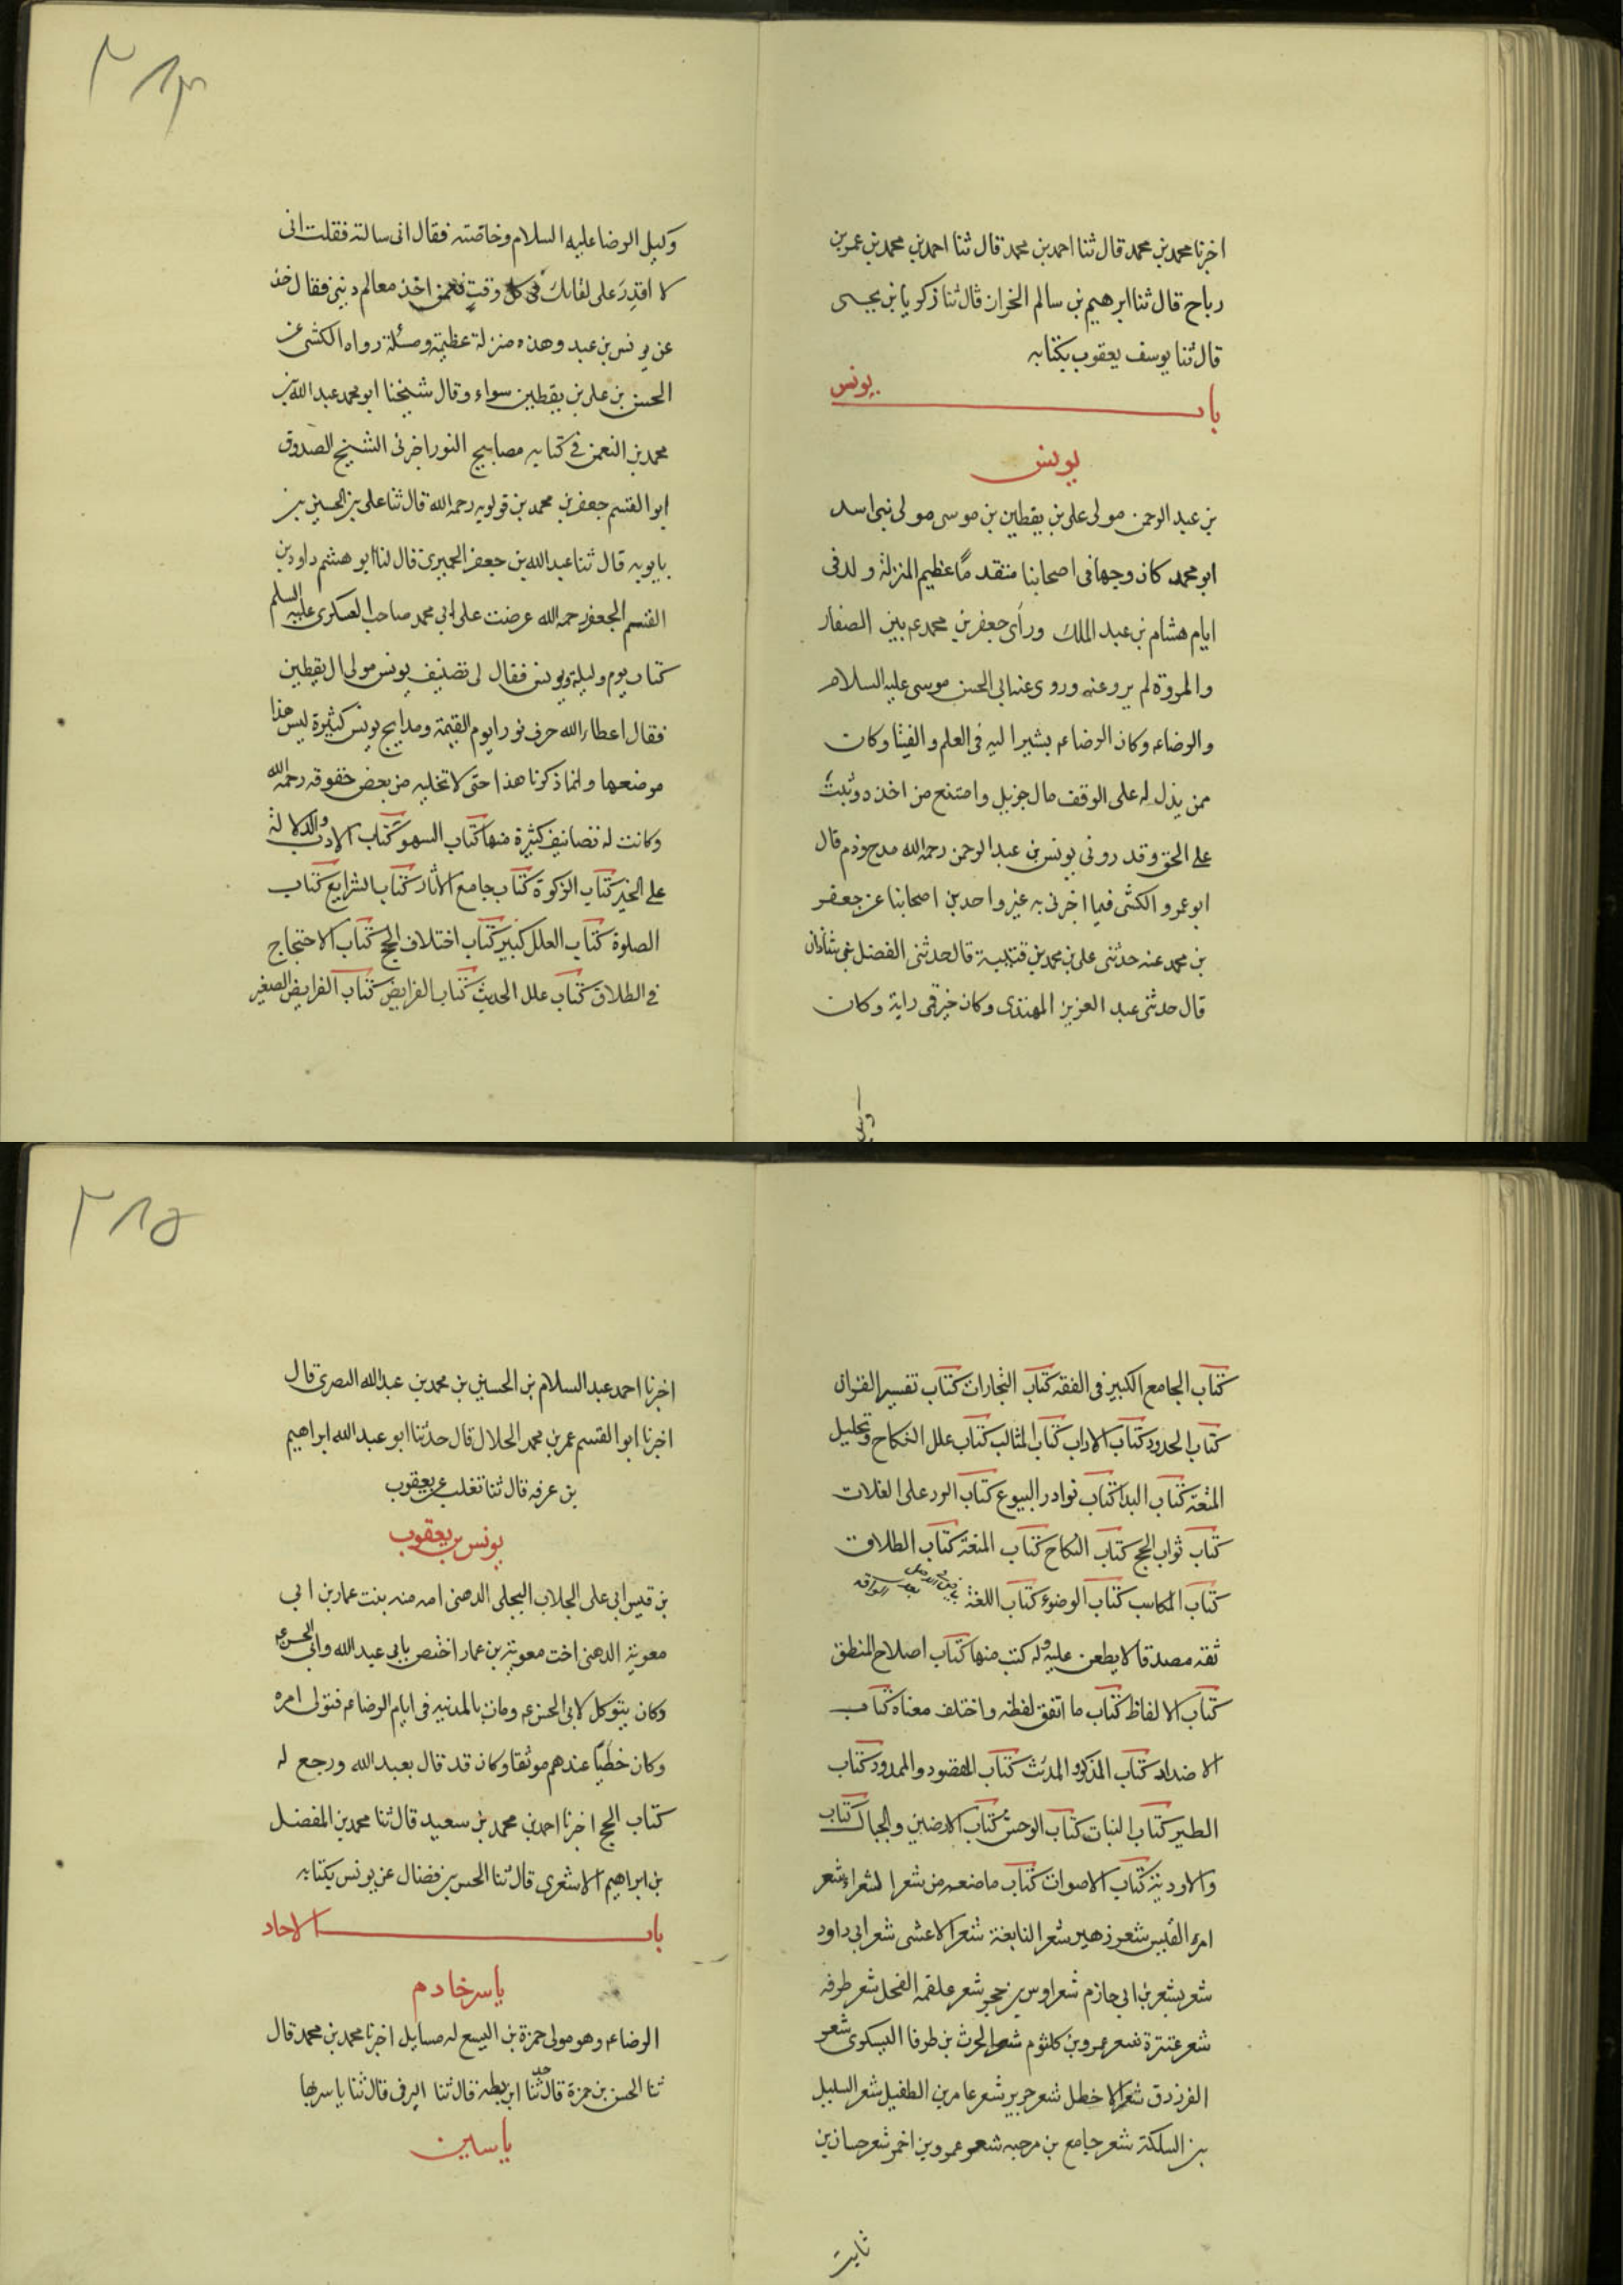 ٢٨٣
اخبرنا محمد بن محمد قال ثنا احمد بن محمد قال ثنا احمد بن محمد بن عمر بن
رباح قال ثنا ابرهيم بن سالم الخزان قال ثنا زكريا بن يحيى
قال ثنا يوسف يعقوب بكتابه
باب يونس
يونس
بن عبد الرحمن مولى على بن يقطين بن موسى مولى بنى اسد
ابو محمد كان وجها فى اصحابنا متقدما عظيم المنزلة ولد فى
ايام هشام بن عبد الملك وراى جعفر بن محمد ع م بين الصفا
والمروة لم يرو عنه وروى عن ابى الحسن موسى عليه السلام
والرضا ع م وكان الرضا ع م يشير اليه فى العلم والفيثا وكان
ممن بذل له على الوقف مال جزيل وامتنع من اخذه وثبت
على الحق وقد روى يونس بن عبد الرحمن رحمه الله مدح وذم قال
ابو عمرو الكشى فيما اخبرنى به غير واحد من اصحابنا عن جعفر
بن محمد عنه حدثنى على بن محمد بن قتيبة قال حدثنى الفضل بن شاذان
قال حدثنى عبد العزيز المهتدى وكان خير قمى رايته وكان
وكيل الرضا عليه السلام وخاصته فقال انى سالته فقلت انى
لا اقدر على لقائك فى كل وقت فعمن اخذ معالم دينى فقال خذ
عن يونس بن عبد وهذه منزلة عظيمة ومسئلة رواه الكشى عن
الحسن بن على بن يقطين سواء وقال شيخنا ابو محمد عبد الله بن
محمد بن النعمن فى كتابه مصابيح النور اخبرنى الشيخ الصدوق
ابو القسم جعفر بن محمد بن قولويه رحمه الله قال ثنا على بن الحسين بن
بابويه قال ثنا عبد الله بن جعفر الحميرى قال لنا ابو هشم داود بن
القسم الجعفرى رحمه الله عرضت على ابى محمد صاحب العسكرى عليه السلم
كتاب يوم وليلة ويونس فقال لى تصنيف يونس مولى ال يقطين
فقال اعطاء الله حرف نورا يوم القيمة ومدايح يونس كثيرة ليس هذا
موضعها وانما ذكرنا هذا حتى لا تخليه من بعض حقوقه رحمه الله
وكانت له تصانيف كثيرة منها كتاب السهو كتاب الادب والدلالة
على الخير كتاب الزكوة كتاب جامع الاثار كتاب الشرايع كتاب
الصلوة كتاب العلل كبير كتاب اختلاف الحج كتاب الاحتجاج
فى الطلاق كتاب علل الحديث كتاب الفرايض كتاب الفرايض الصغير
٢٨٥
كتاب الجامع الكبير فى الفقه كتاب التجارات كتاب تفسير القران
كتاب الحدود كتاب الاداب كتاب المثالب كتاب علل النكاح وتحليل
المتعة كتاب البدا كتاب نوادر البيوع كتاب الرد على الغلات
كتاب ثواب الحج كتاب النكاح كتاب المتعة كتاب الطلاق
كتاب المكاسب كتاب الوضوء كتاب اللغة
ثقه مصدقا لا يطعن عليه وله كتب منها كتاب اصلاح المنطق
كتاب الالفاظ كتاب ما اتفق لفظه واختلف معناه كتاب
الاضداد كتاب المذكر والمدنث كتاب المقصود والممدود كتاب
الطير كتاب النبات كتاب الوحش كتاب الارضين والجبال كتاب
والاودية كتاب الاصوات كتاب ما صنعه من شعر الشعراء شعر
امرء القيس شعر زهير شعر النابغة شعر الاعشى شعر ابى داود
شعر بشعر بن ابى حازم شعر اوس بن حجر شعر علقمه الفحل شعر طرفه
شعر عنترة شعر عمرو بن كلثوم شعر الحرث بن طرفا اليسكرى شعر
الفرزدق شعر الاخطل شعر جرير شعر عامر بن الطفيل شعر السليل
بن السلكة شعر جامع بن مرحبه شعر عمرو بن احمر شعر حسان بن
ثابت
اخبرنا احمد عبد السلام بن الحسين بن محمد بن عبد الله البصرى قال
اخبرنا ابو القسم عمر بن محمد الحلال قال حدثنا ابو عبد الله ابراهيم
بن عرفه قال ثنا تغلب عن يعقوب
يونس بن يعقوب
بن قيس ابى على الجلاب البجلى الدهنى امه منه بنت عمار بن ابى
معوية الدهنى اخت معوية بن عمار اختص بابى عبد الله وابى الحسن ع م
وكان يتوكل لابى الحسن ع م ومات بالمدينه فى ايام الرضا ع م فتولى امره
وكان خطيا عندهم موثقا وكان قد قال بعبد الله ورجع له
كتاب الحج اخبرنا احمد بن محمد بن سعيد قال ثنا محمد بن المفضل
بن ابراهيم الاشعرى قال ثنا الحسن بن فضال عن يونس بكتابه
باب الاحاد
ياسر خادم
الرضا ع م وهو مولى حمزة بن اليسع له مسايل اخبرنا محمد بن محمد قال
ثنا الحسن بن حمزة قال حدثنا ابن بطه قال ثنا البرقى قال ثنا ياسر بها
ياسين